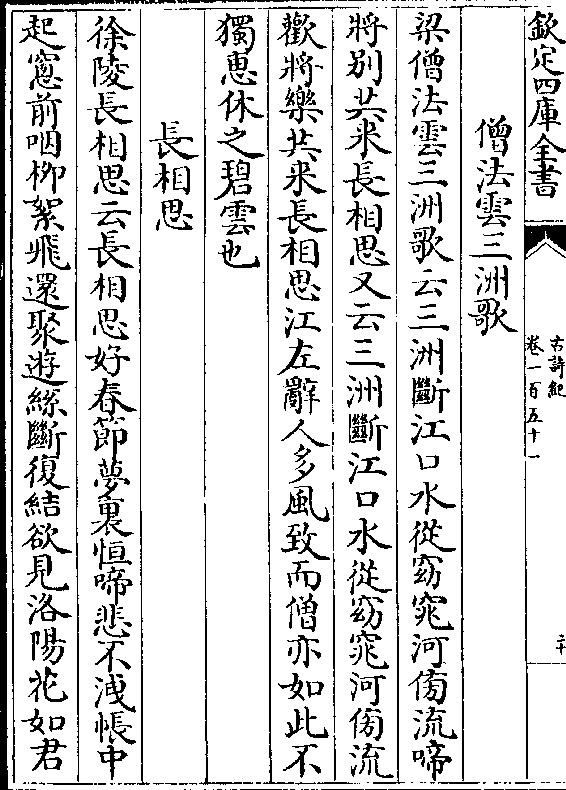 欽定四庫全書
古詩紀
卷一百五十一
二十
僧法雲三洲歌
梁僧法雲三洲歌云三洲斷江口水從窈窕河傍流啼
將别共来長相思又云三洲斷江口水從窈窕河傍流
歡將樂共来長相思江左辭人多風致而僧亦如此不
獨惠休之碧雲也
長相思
徐陵長相思云長相思好春節夢裏恒啼悲不洩帳中
起窻前咽柳絮飛還聚遊絲斷復結欲見洛陽花如君